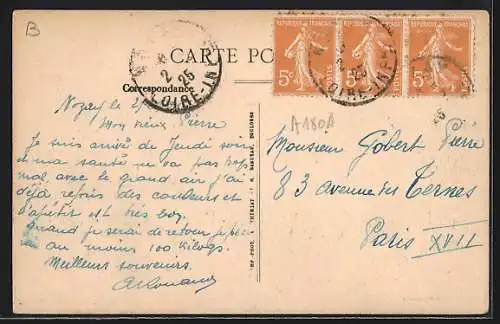 B
CARTE PO
Correspondance
2
25
LOIRE-INF
REPUBLIQUE FRANÇAISE
5c
POSTES
REPUBLIQUE FRANÇAISE
5c
REPUBLIQUE FRANÇAISE
5c
2
25
LOIRE-INF
A1801
Nozay le
Mon vieux Pierre
Je suis arrivé de Jeudi soir
et ma santé ne va pas trop
mal avec le grand air j'ai
déjà repris des couleurs et
l'appétit est très bon.
Quand je serai de retour je
au moins 100 kilogs.
Meilleurs souvenirs.
Monsieur Gobert Pierre
83 avenue des Ternes
Paris XVII